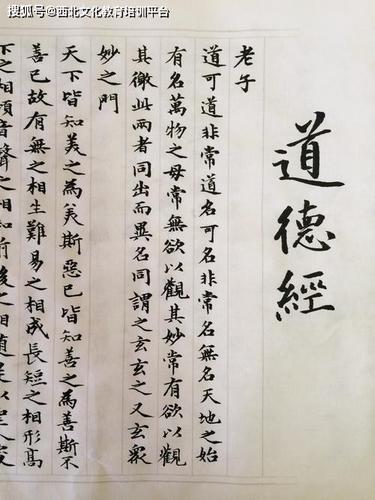 搜狐号@西北文化教育培训平台
道德經
老子
道可道非常道名可名非常名無名天地之始
有名萬物之母常無欲以觀其妙常有欲以觀
其徼此兩者同出而異名同謂之玄玄之又玄衆
妙之門
天下皆知美之為美斯惡已皆知善之為善斯不
善已故有無之相生難易之相成長短之相形髙
下之相傾音聲之相和前後之相随是以